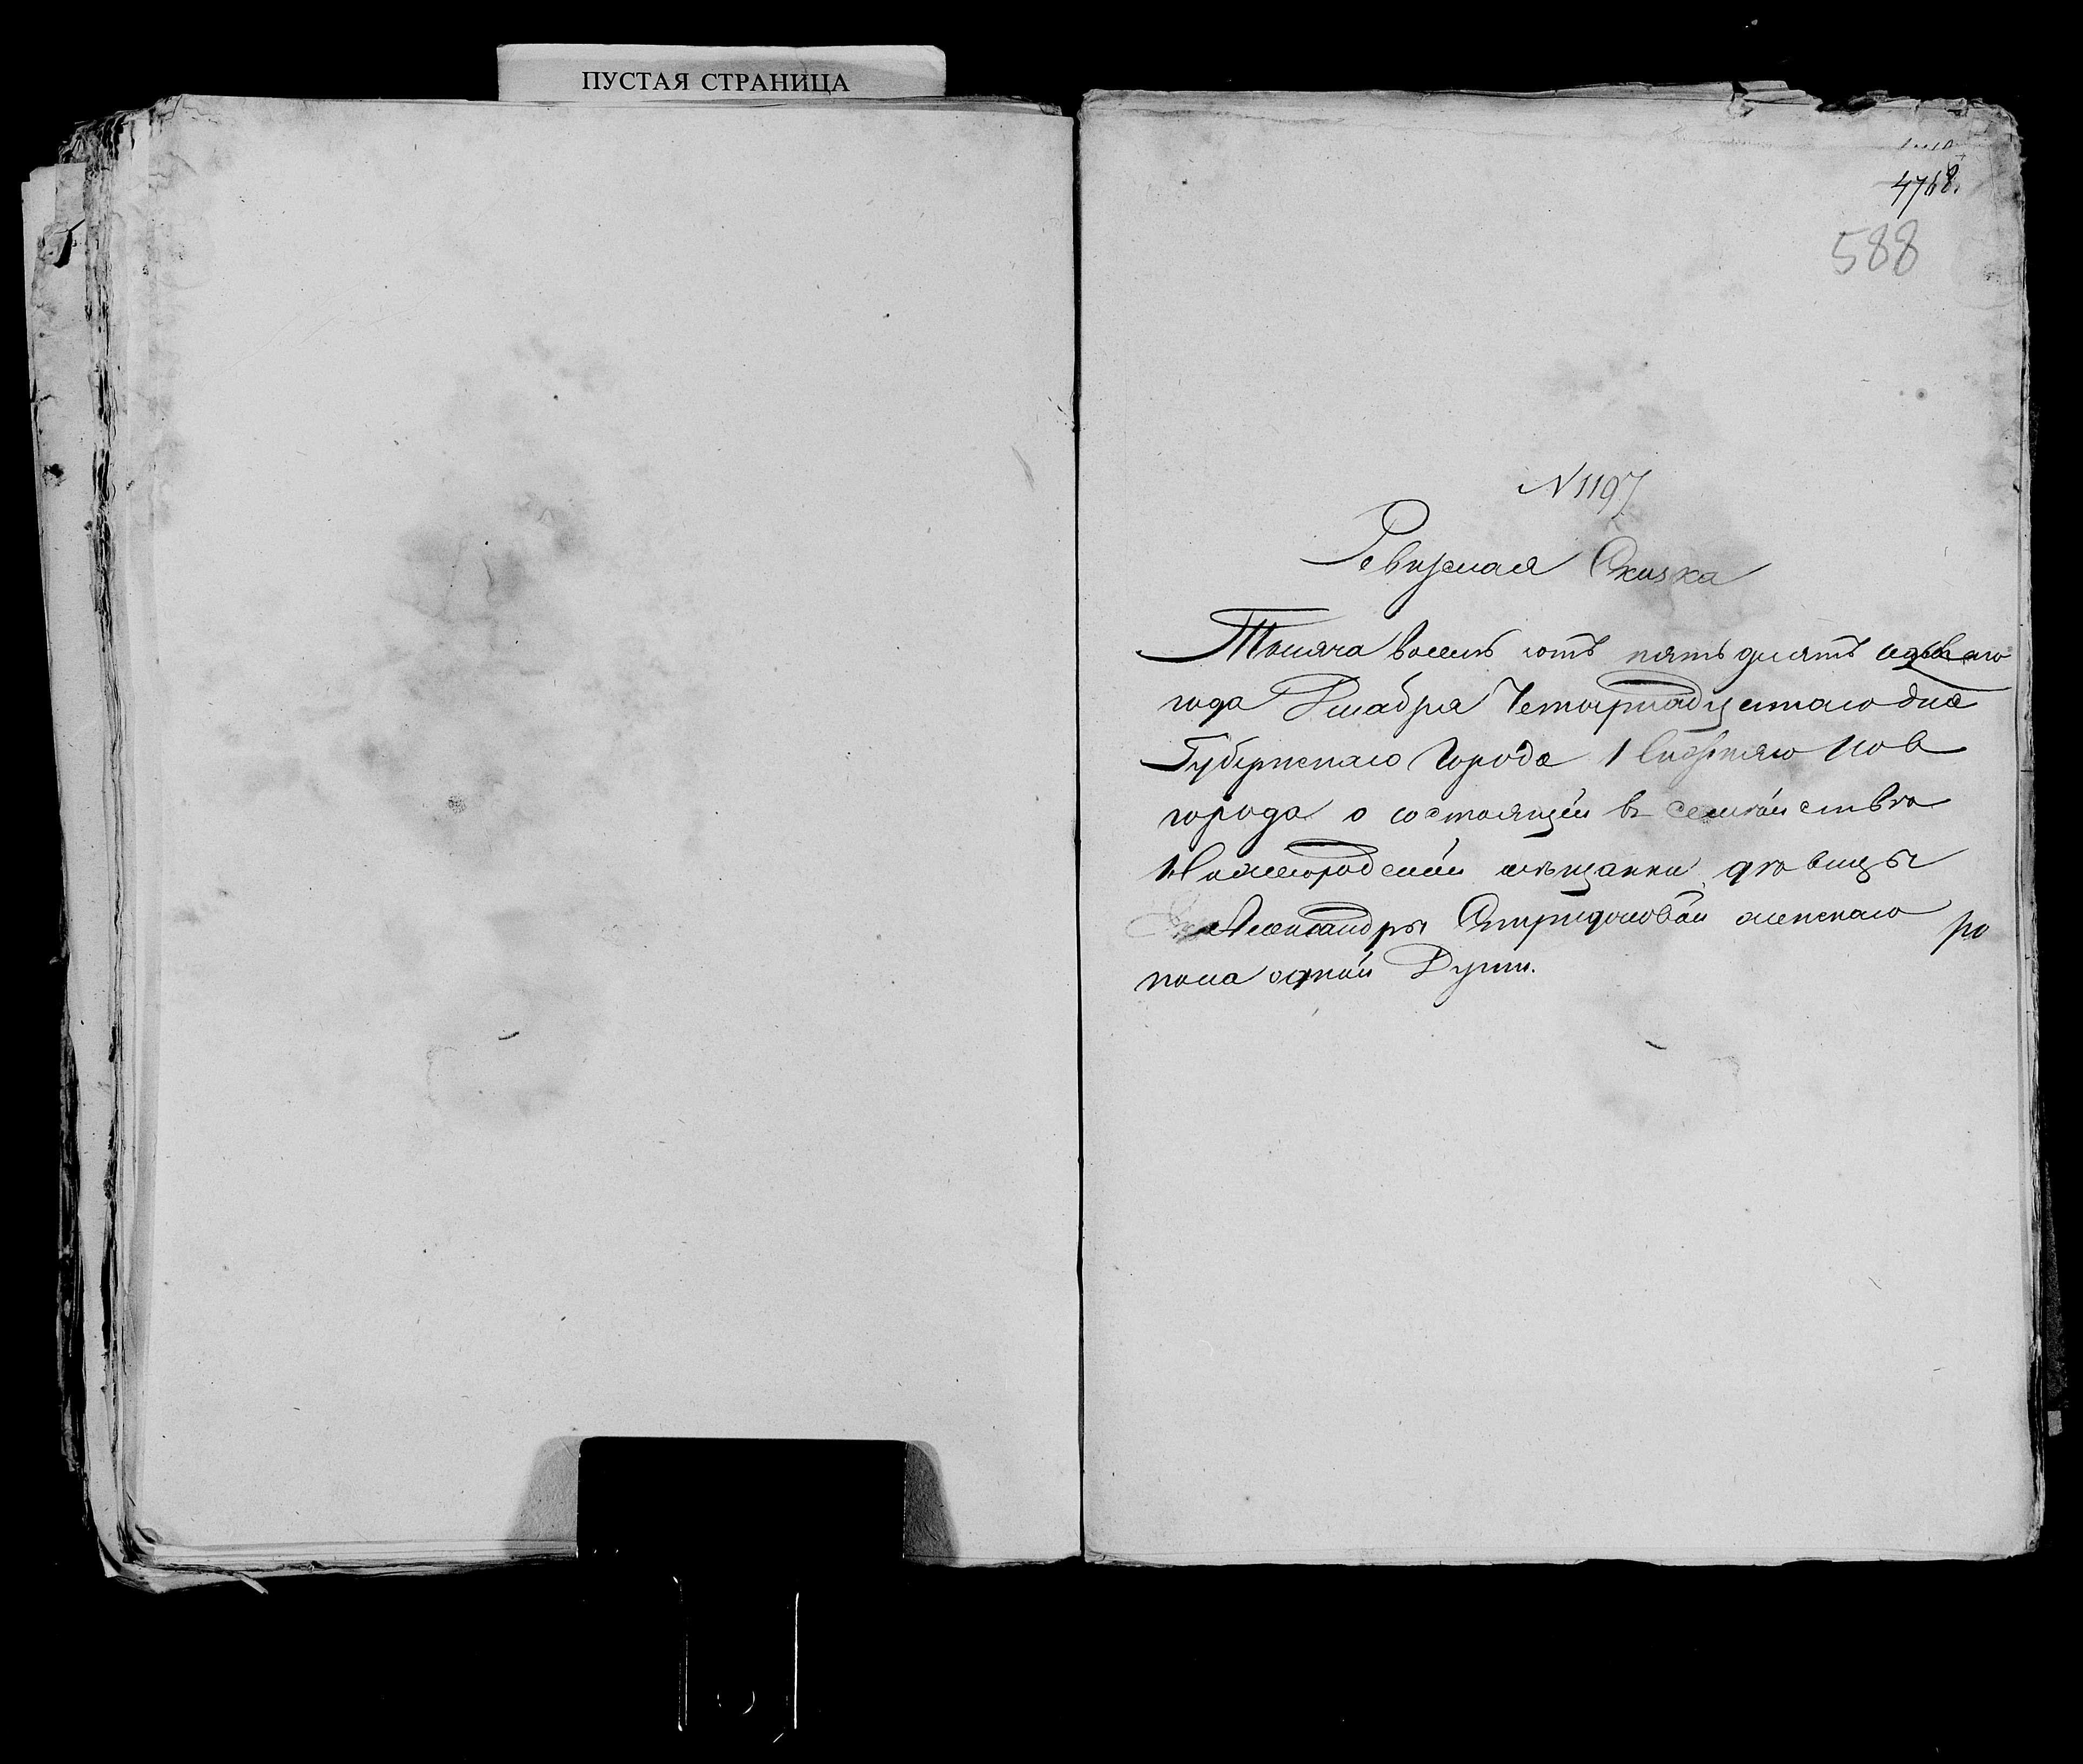 ПУСТАЯ СТРАНИЦА
4768.
588
N 1197
Ревизская Скаска
Тысяча восемь сотъ пять десятъ
года Декабря Четырнадцатаго дня
Губернскаго Города Нижняго Нов
города о состоящей въ семействѣ
Нижегородской мѣщанки дѣвицы
Александры Спиридоновой женскаго
пола одной Души.